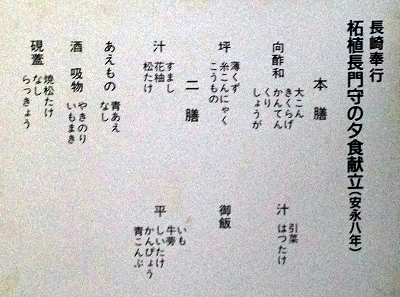 長崎奉行
柘植長門守の夕食献立(安永八年)
本膳
向酢和
大こん
きくらげ
かんてん
くり
しょうが
汁
引菜
はつたけ
坪
薄くず
糸こんにゃく
こうもの
御飯
二膳
汁
すまし
花柚
松たけ
平
いも
牛蒡
しいたけ
かんぴょう
青こんぶ
あえもの
青あえ
なし
酒 吸物
やきのり
いもまき
硯蓋
焼松たけ
なし
らっきょう